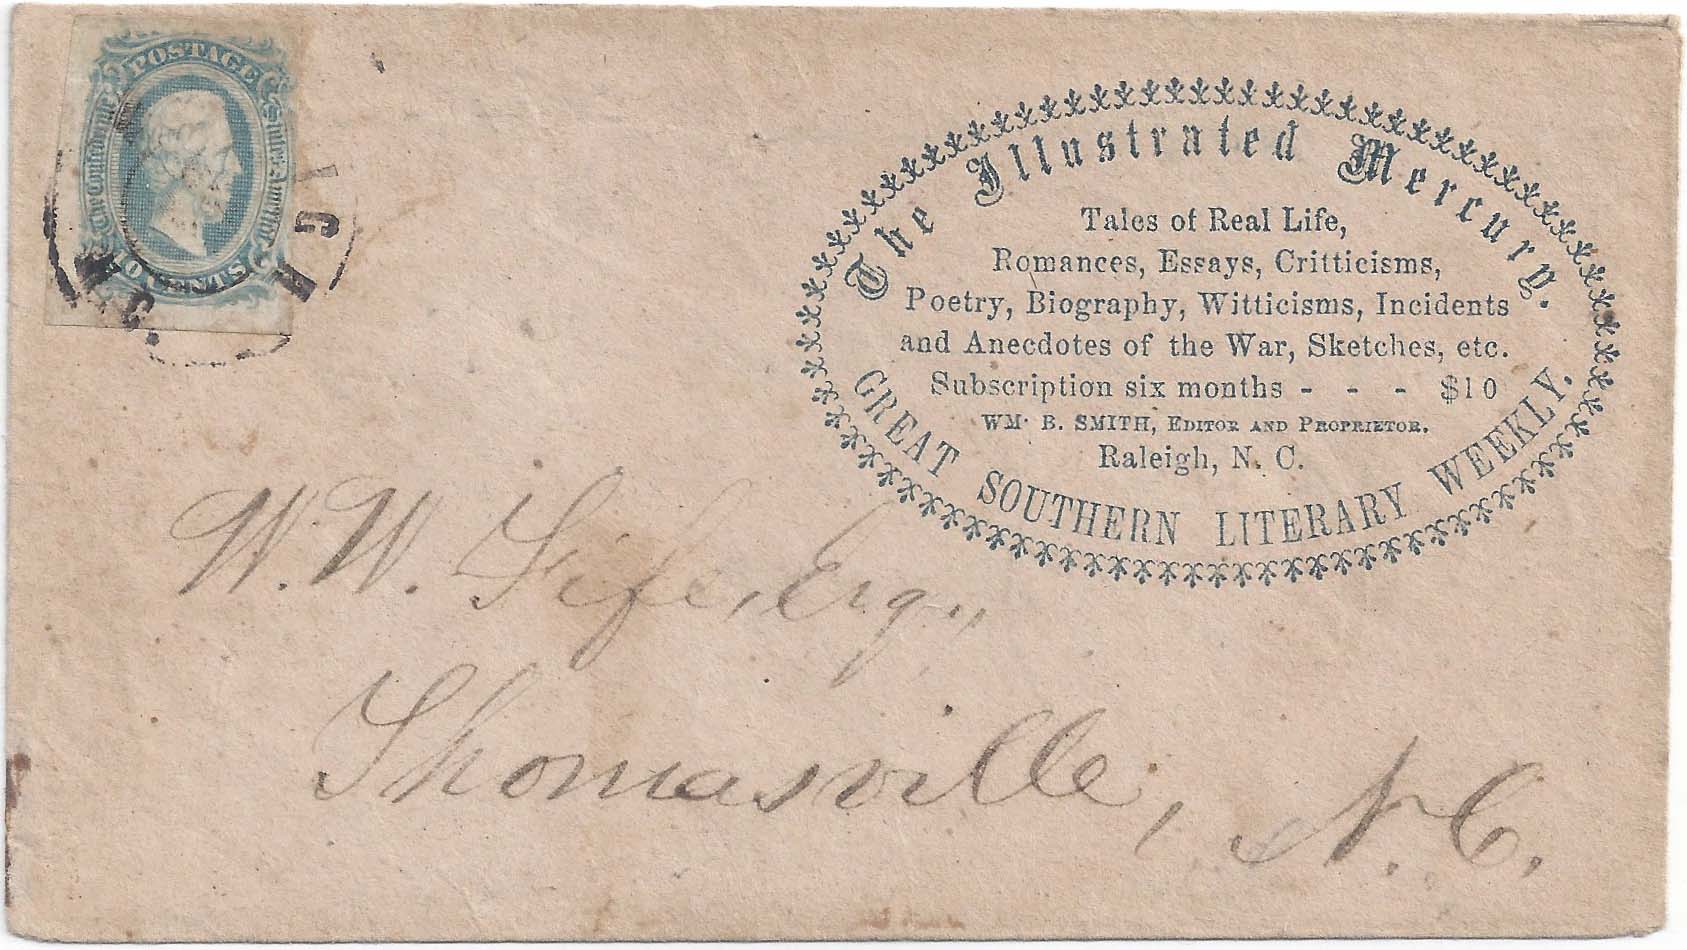 POSTAGE
The Confederate
States of America
CENTS
The Illustrated Mercury.
Tales of Real Life,
Romances, Essays, Critticisms,
Poetry, Biography, Witticisms, Incidents
and Anecdotes of the War, Sketches, etc.
Subscription six months - - - $10
WM. B. SMITH, EDITOR AND PROPRIETOR.
Raleigh, N. C.
GREAT SOUTHERN LITERARY WEEKLY.
W. W. Fife, Esq.,
Thomasville, N. C.